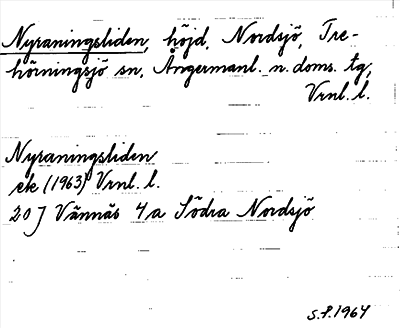 Nyraningsliden, höjd, Nordsjö, Tre-
hörningsjö sn, Ångermanl. n. doms. tg,
Vrnl. l.
Nyraningsliden
ek (1963) Vrnl. l.
20 J Vännäs 4a Södra Nordsjö
S.P. 1964